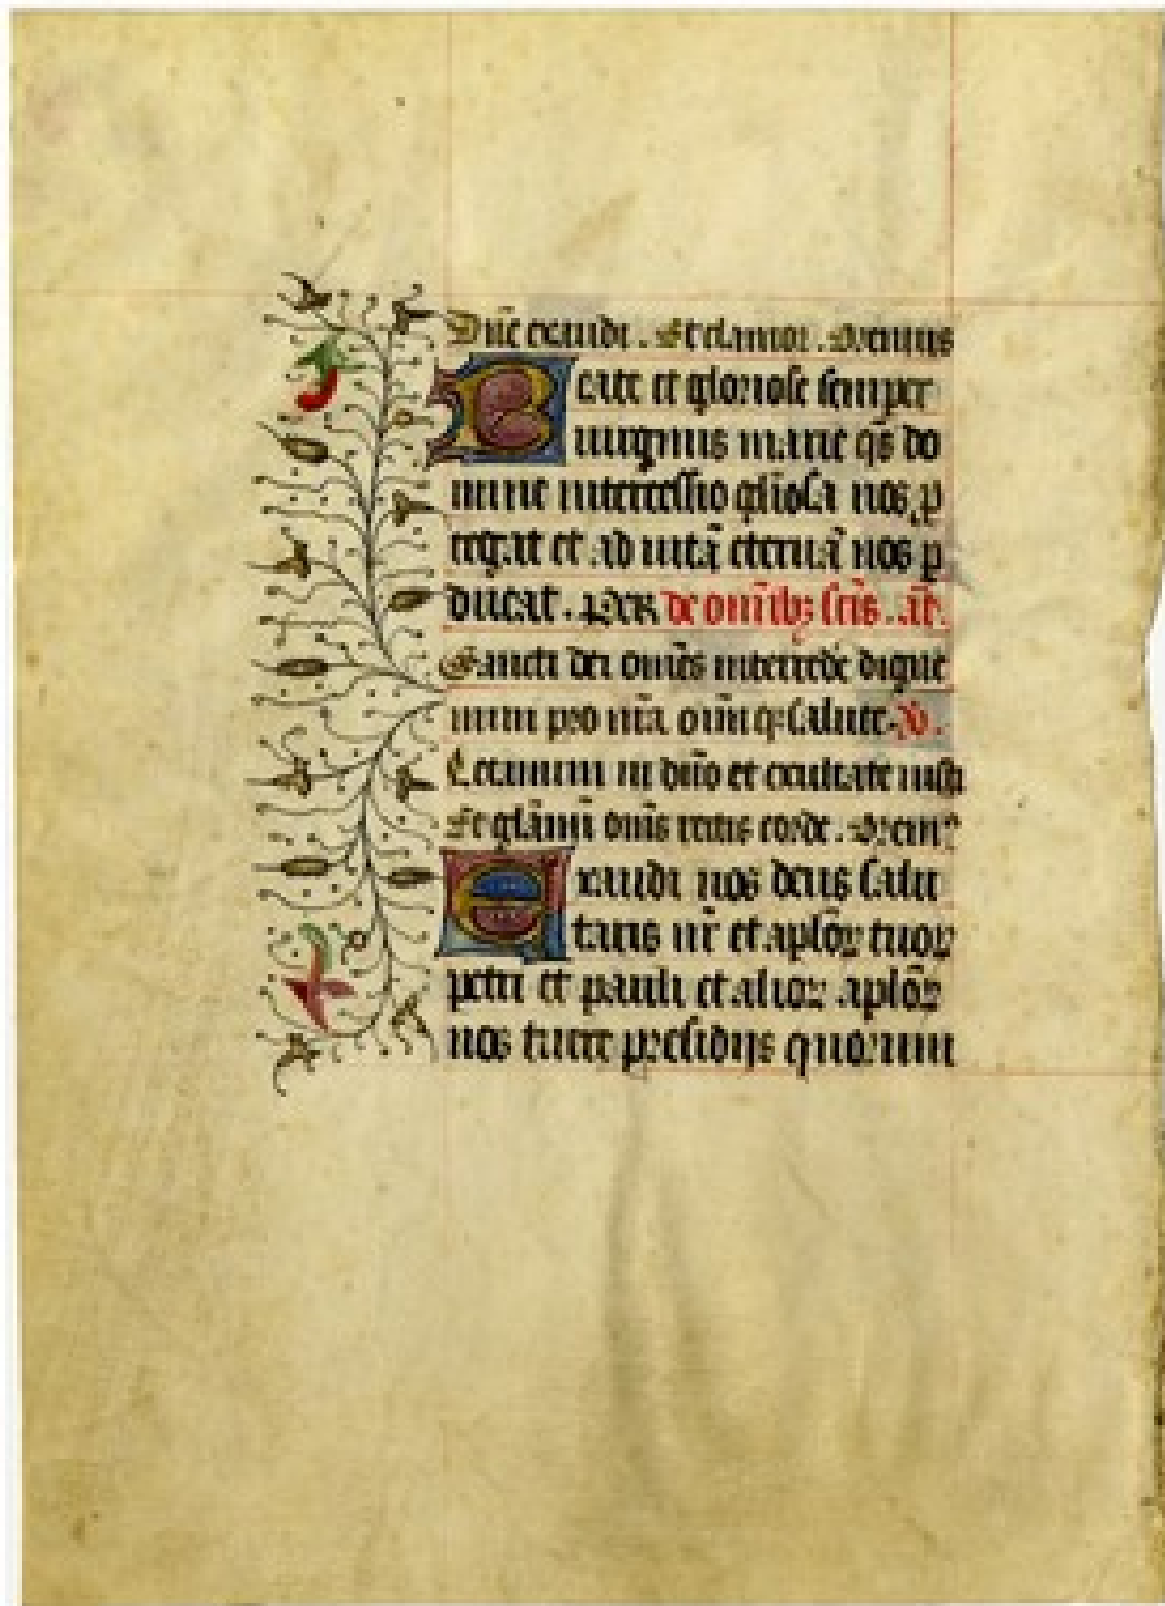 Dñe exaudi. Et clamor. Oremus
Beate et gloriose semper
uirginis marie qs̄ do
mine intercessio gl̄iosa nos ꝓ
tegat et ad uitā eternā nos ꝑ
ducat. Per de om̄ibꝫ scīs. añ.
Sancti dei om̄es intercedē digne
mini pro nr̄a om̄iū qꝫ salute. V̷.
Letamini in dn̄o et exultate iusti
Et gl̄amī om̄s recti corde. Oremꝰ
Exaudi nos deus saluc
taris nr̄ et apl̄oꝝ tuoꝝ
petri et pauli et alioꝝ apl̄oꝝ
nos tuere presidijs quorum